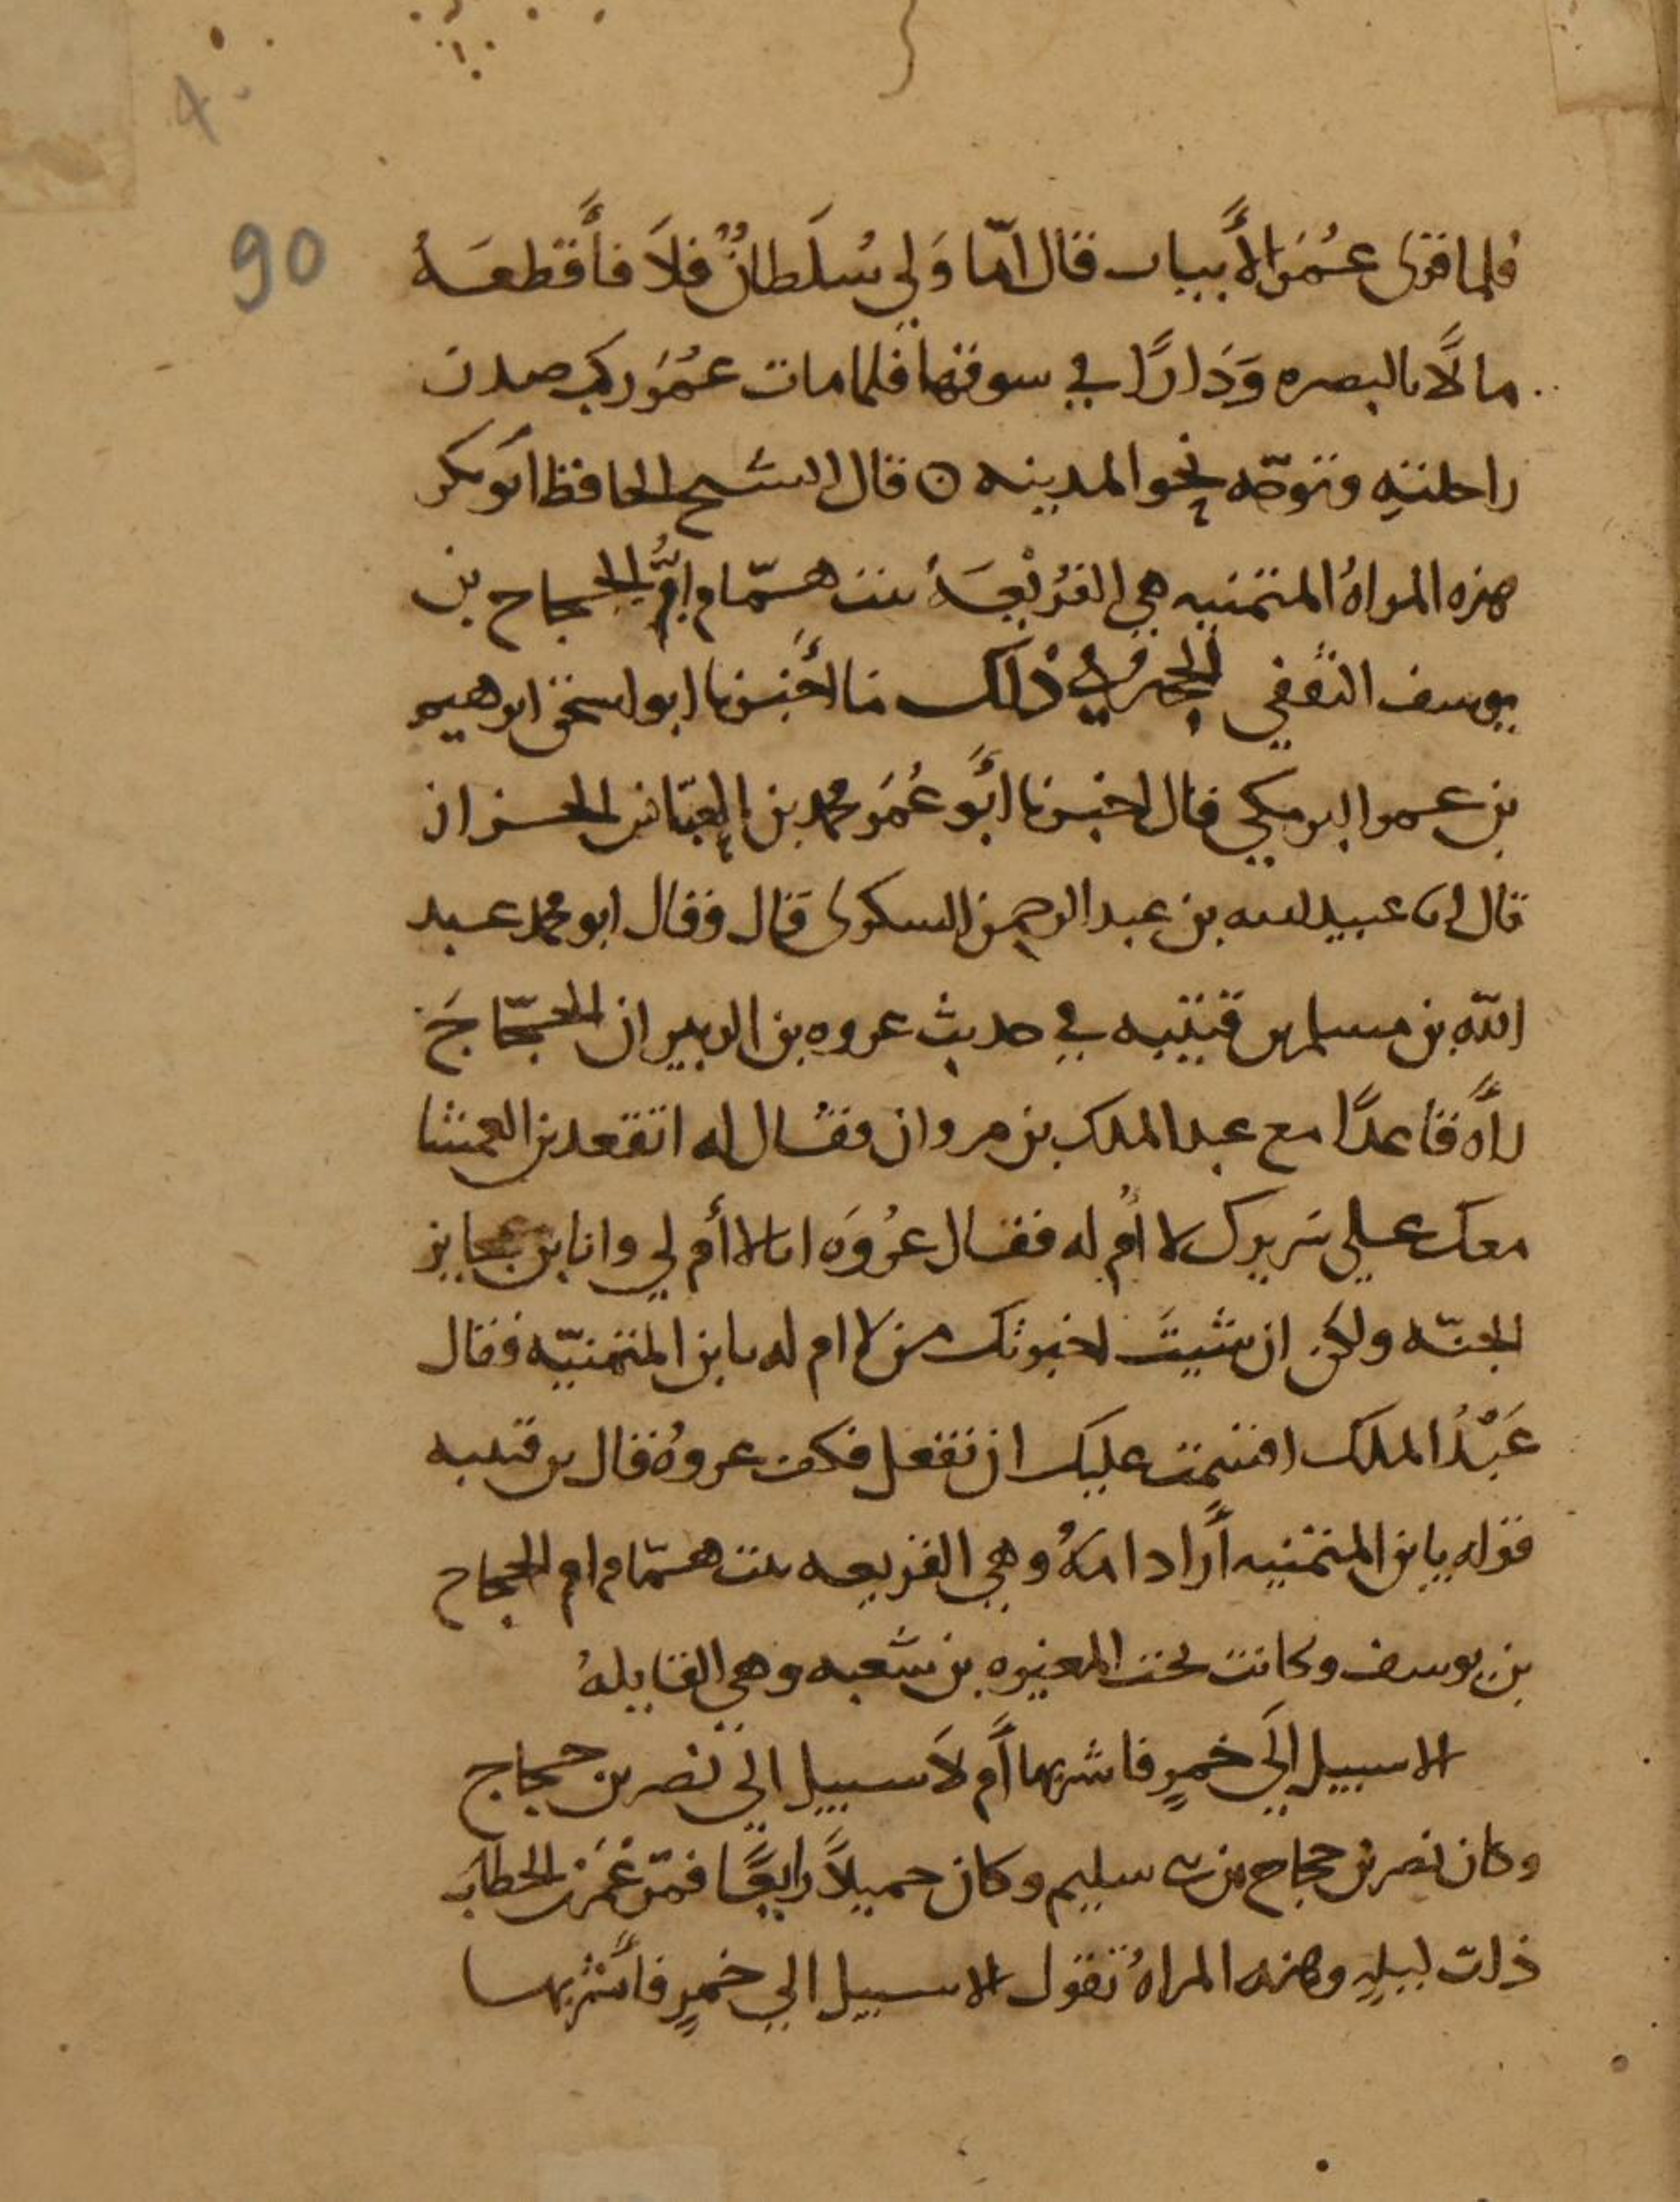 90
فلما قرى عُمَر الأبيات قال امّا وَلي سُلَطانٌ فلاَ فأقطعَهُ
مالًا بالبصره وَدَارًا في سوقها فلما مات عُمَر ركب صدر
راحلته وتوجّه نحو المدينه ه قال الشيخ الحافظ ابو بكر
هذه المراهُ المتمنيه هي الفُرَيْعَهُ بنت همّام امُّ الحجاج بن
يوسف الثقفي الحجّهُ في ذلك ما أخبرنا ابو اسحق ابرهيم
بن عمر البرمكي قال اخبرنا أبو عُمَر محمد بن العبّاس الخزاز
قال انا عبيد الله بن عبد الرحمن السكرى قال وقال ابو محمد عبد
اللّه بن مسلم بن قتيبه في حديث عروه بن الزبير ان الحجّاجَ
رأه قاعدًا مع عبد الملك بن مروان فقال له اتقعد بن العمشا
معك علي سريرك لا أُم له فقال عُروَه انا لا أم لي وانا بن عجايز
الجنّه ولكن ان شيتَ اخبرتك من لا ام له يا بن المتمنيّه فقال
عَبْدُ الملك اقسمت عليك ان تفعل فكف عروهُ قال بن قتيبه
قوله يا بن المتمنيه أراد امهُ وهي الفريعه بنت همّام ام الحجاج
بن يوسف وكانت تحت المغيره بن شعبه وهي القايلهُ
الا سبيل إلَي خمرٍ فاشربها أم لاَ سبيل الي نصر بن حجاج
وكان نصر بن حجاج من بني سليم وكان جميلاً رايعًا فمرّ عُمَر بن الخطاب
ذات ليلهٍ وهذه المراهُ تقول الا سبيل الي خمرٍ فأشربها